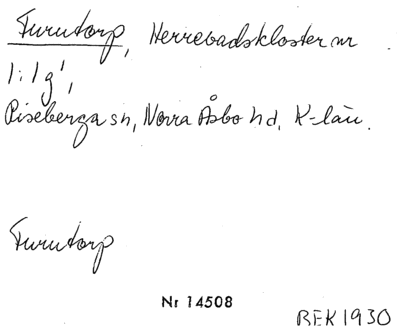 Furutorp, Herrevadskloster nr
1:1 g¹,
Riseberga sn, Norra Åsbo hd, K-län.
Furutorp
Nr 14508
BEK 1930